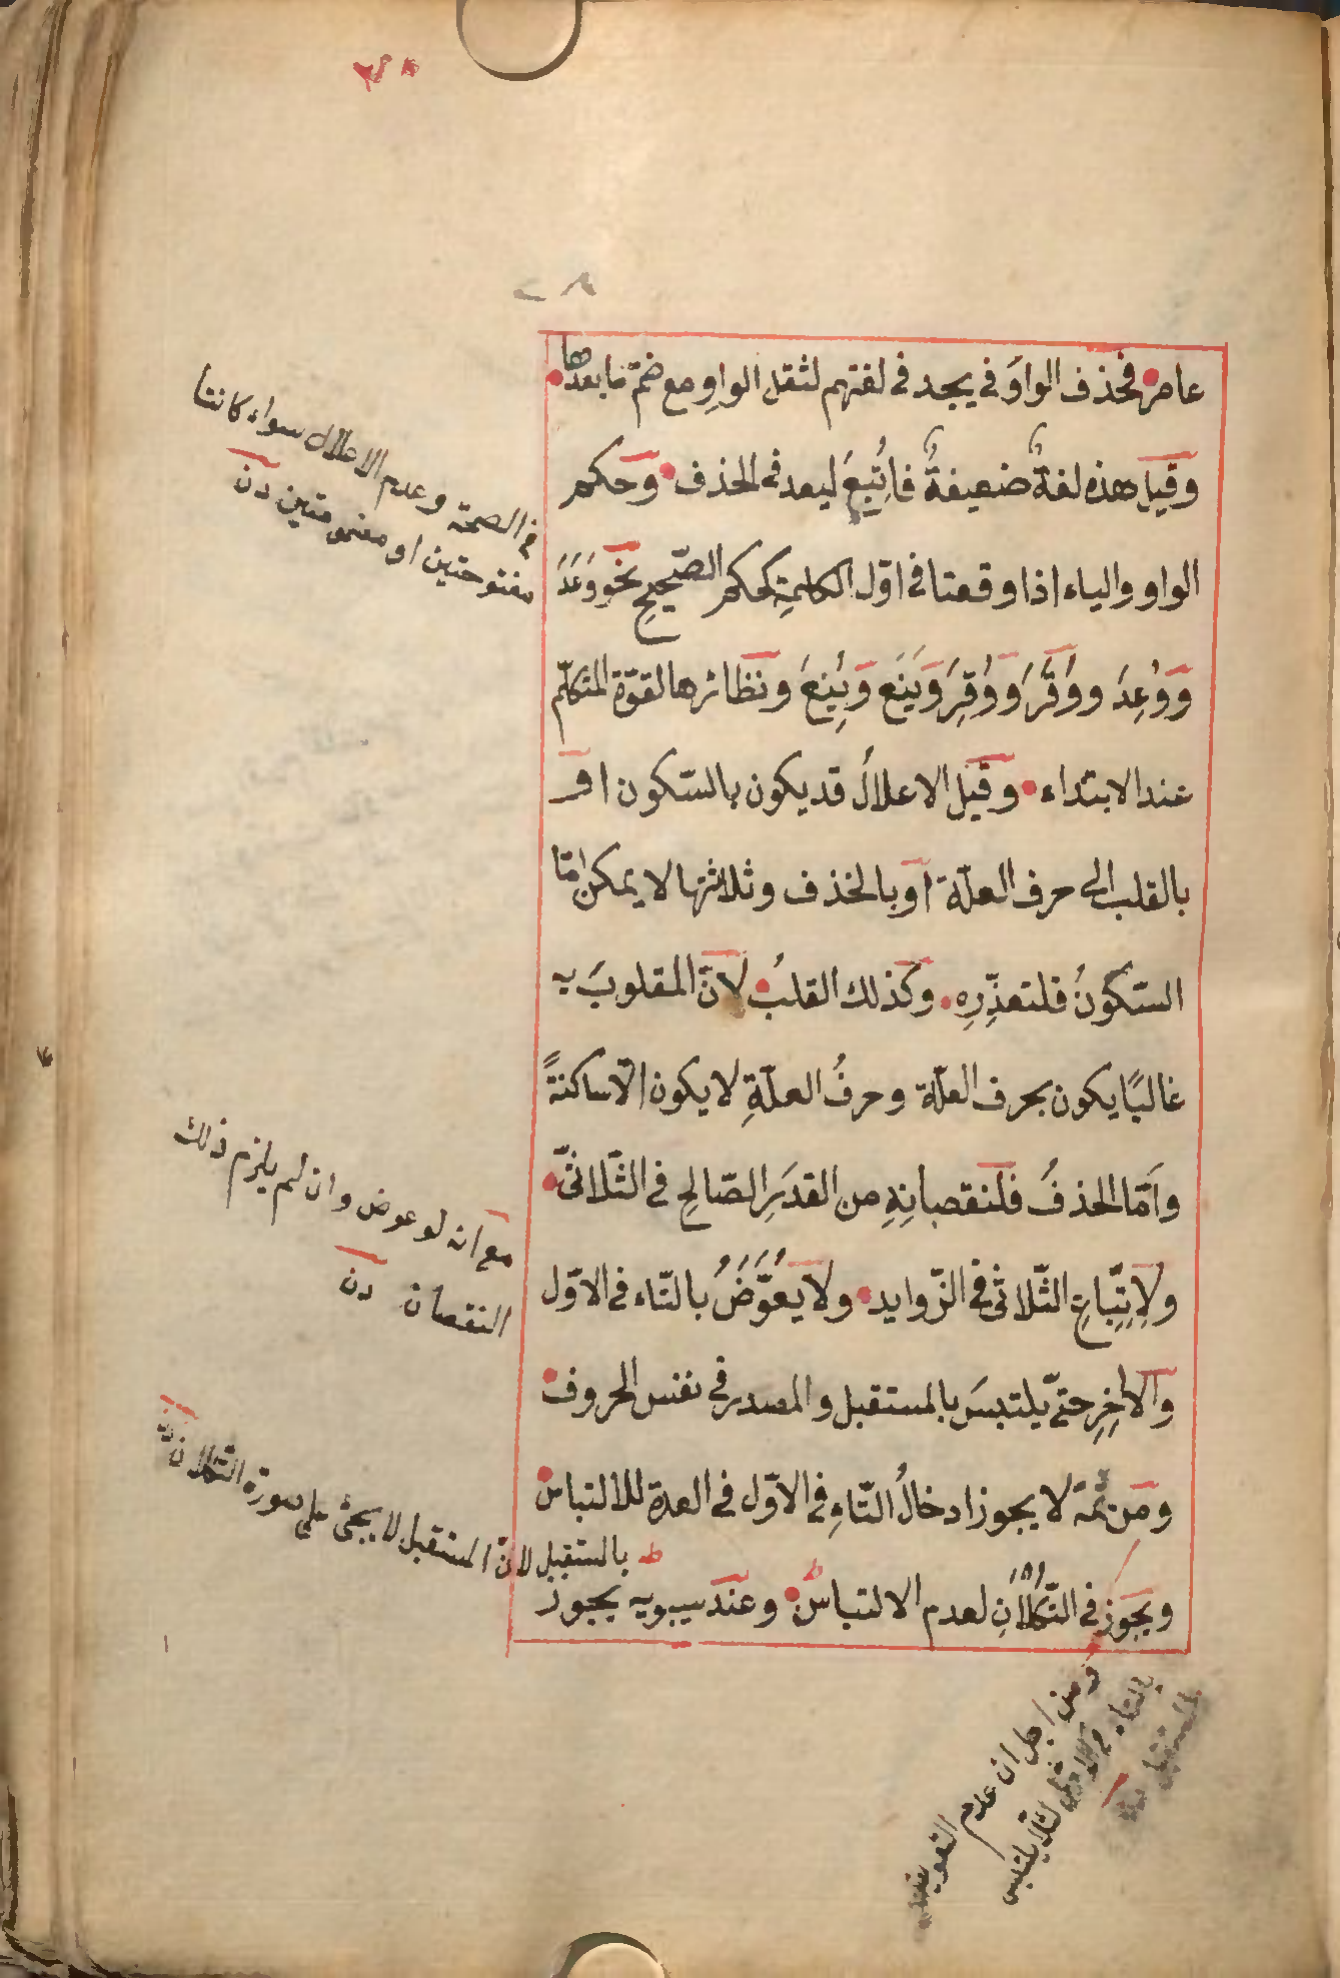 عامر فحذف الواوَ في يجد في لغتهم لثقل الواوِ مع ضمّ ما بعدها
وقيل هذه لغةٌ ضعيفةٌ فاُتبِعَ ليعد في الحذف وحكم
الواو والياء اذا وقعتا في اوّل الكلمةِ كحكم الصّحيحِ نحو وَعَدَ
وَوُعِدَ ووَقَّرَ وَوُقِرَ وَيَنَع وَيُنِعَ ونظائرها لقوّة المتكلّم
عند الابتداء وقيل الاعلالُ قد يكون بالسّكون او
بالقلب الى حرف العلّة اَو بالحذف وثلاثتها لا يمكن امّا
السّكونُ فلتعذّرِهِ وكذلك القلبُ لانّ المقلوبَ به
غالبًا يكون بحرف العلّة وحرفُ العلّةِ لا يكون الّا ساكنةً
واَمّا الحذفُ فلنقصانِهِ من القدَرِ الصّالحِ في الثّلاثيّ
ولِاِتِّباعِ الثّلاثي في الزّوايد ولا يُعَوَّضُ بالتّاء في الاوّل
والاخِرِ حتّى يلتبسَ بالمستقبل والمصدر في نفس الحروف
ومن ثمّة لا يجوز ادخالُ التّاءِ في الاوّل في العدة للالتباس
ويجوز في التُّكْلانِ لعدم الالتباس وعند سيبويه يجوز
في الصحة وعدم الاعلال سواء كانتا
مفتوحتين او مضمومتين دن
مع انه لو عوض وان لم يلزم ذلك
النقصان دن
بالمستقبل لانّ المستقبل لا يجئ على صورة التكلان
ومن اجل ان عدم التعويض
بالتاء في الاول لئلا يلتبس
بالمستقبل